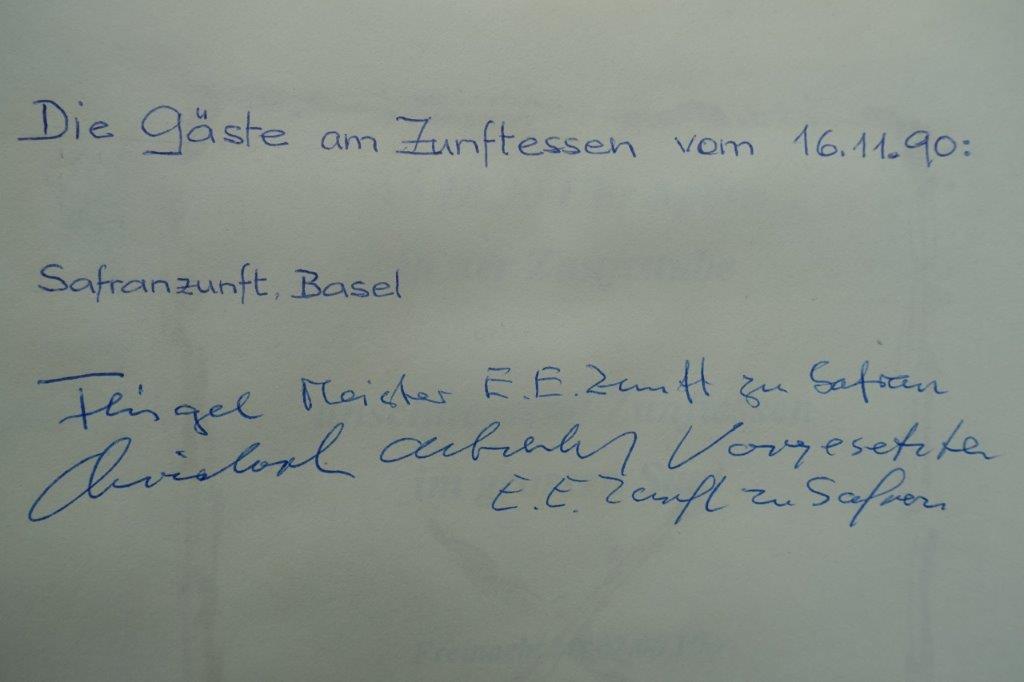 Die Gäste am Zunftessen vom 16.11.90:
Safranzunft, Basel
Meister E.E. Zunft zu Safran
Christoph Vorgesetzter
E.E. Zunft zu Safran